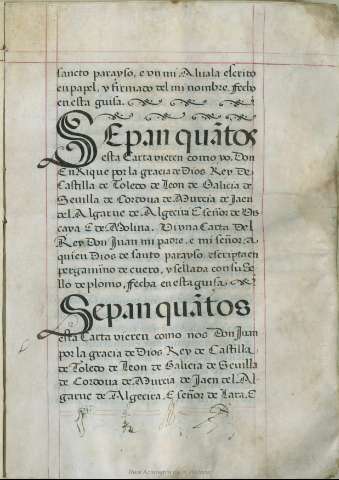 sancto parayso, e vn mi Aluala escrito
en papel, y firmado del mi nombre, fecho
en esta guisa.
SEpan quātos
esta Carta vieren como yo, Don
EnRique por la gracia de Dios Rey de
Castilla de Toledo de Leon de Galicia de
Sevilla de Cordova de Murcia de Jaen
del Algarue de Algezira E señor de Vis
caya E de Molina. Vi vna Carta Del
Rey Don Juan mi padre, e mi señor a
quien Dios de santo parayso escripta en
pergamino de cuero, y sellada con su Se
llo de plomo, fecha en esta guisa
Sepan quātos
esta Carta vieren como nos Don Juan
por la gracia de Dios, Rey de Castilla,
de Toledo de Leon de Galicia de Sevilla
de Cordova de Murcia de Jaen del Al-
garue de Algezira, E señor de Lara, E